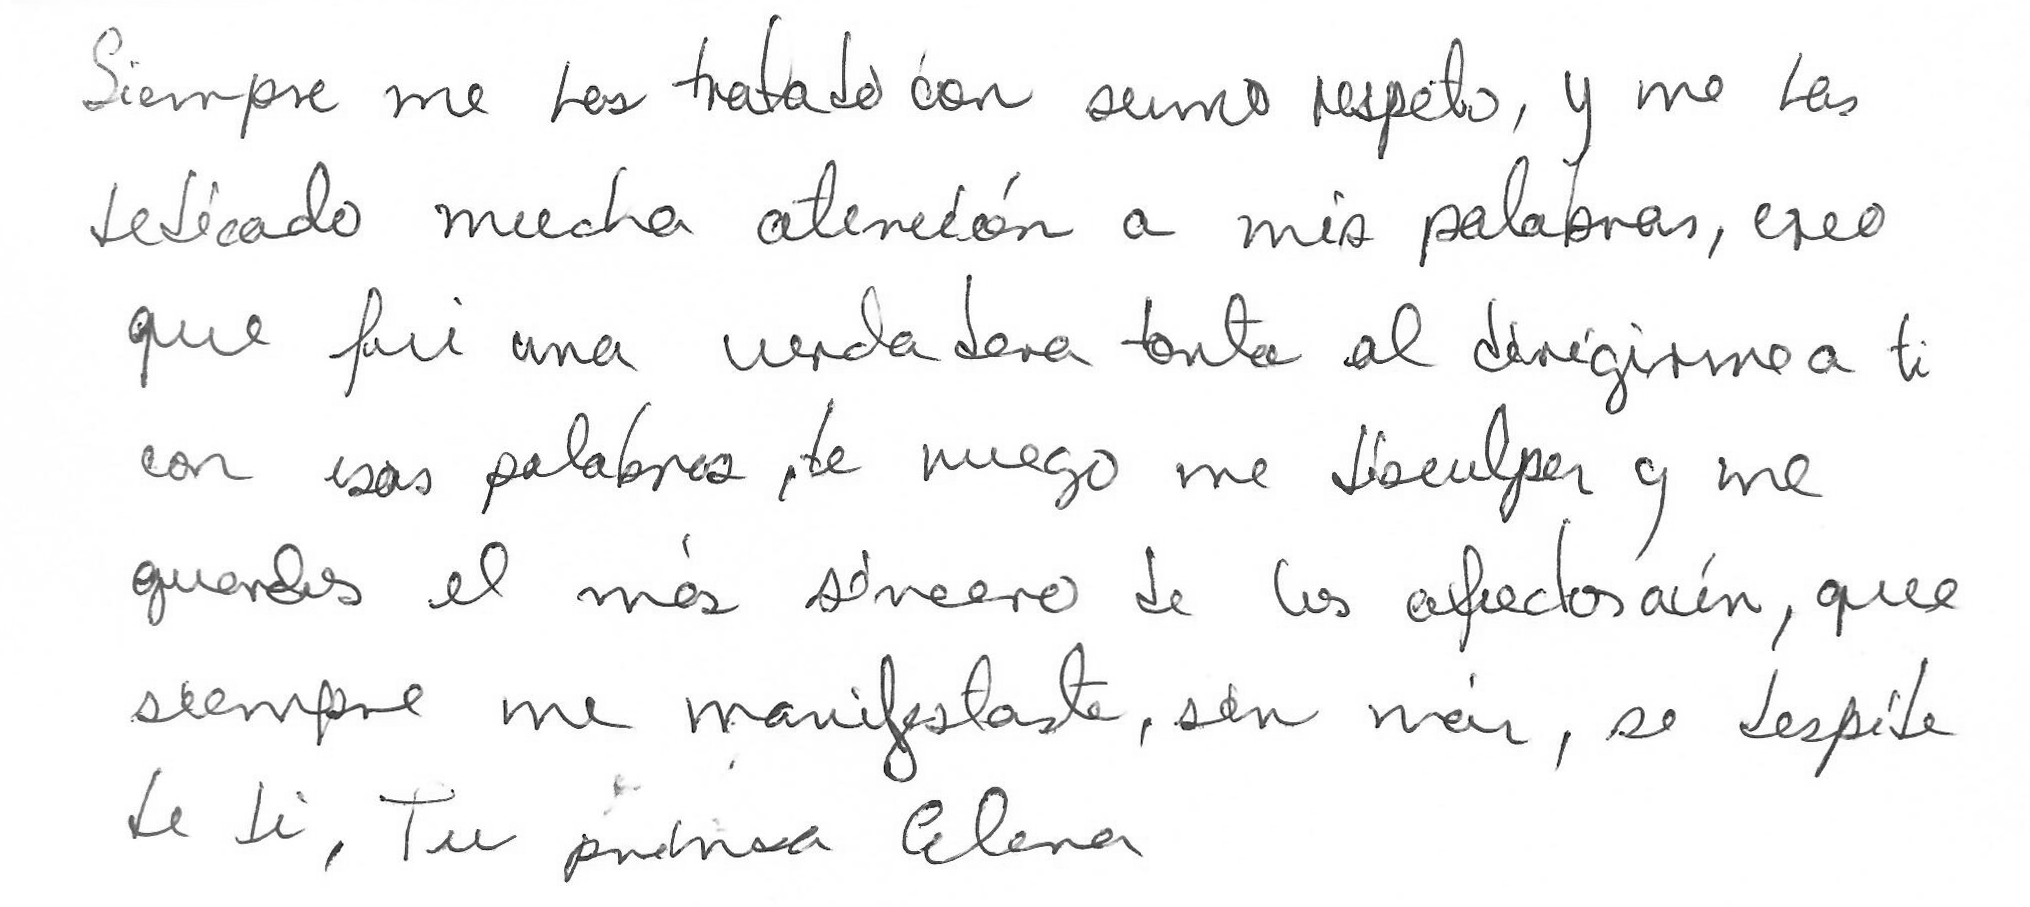 Siempre me has tratado con sumo respeto, y me has
dedicado mucha atención a mis palabras, creo
que fui una verdadera tonta al dirigirme a ti
con esas palabras, te ruego me disculpes y me
guardes el más sincero de los afectos aún, que
siempre me manifestaste, sin más, se despide
de ti, Tu prima Elena